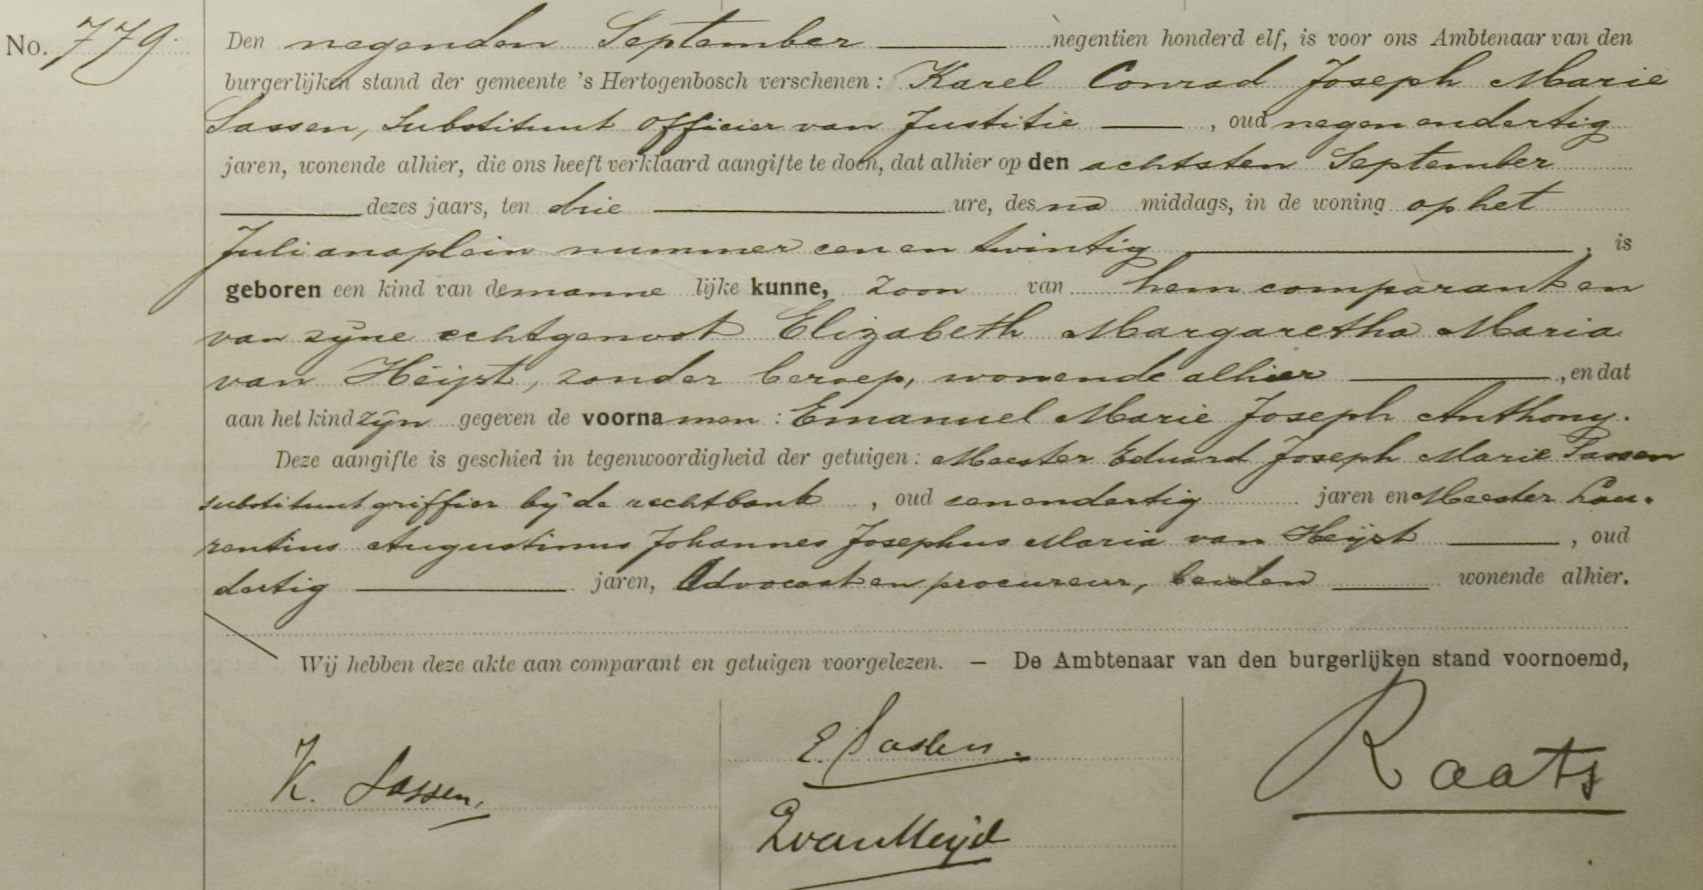 No. 779.
Den negenden September negentien honderd elf, is voor ons Ambtenaar van den
burgerlijken stand der gemeente 's Hertogenbosch verschenen: Karel Conrad Joseph Marie
Sassen, Substituut officier van Justitie, oud negenendertig
jaren, wonende alhier, die ons heeft verklaard aangifte te doen, dat alhier op den achtsten September
dezes jaars, ten drie ure, des na middags, in de woning op het
Julianaplein nummer eenentwintig, is
geboren een kind van de mannelijke kunne, zoon van hem comparant en
van zijne echtgenoot Elizabeth Margaretha Maria
van Heijst, zonder beroep, wonende alhier, en dat
aan het kind zijn gegeven de voornamen: Emanuel Marie Joseph Anthony.
Deze aangifte is geschied in tegenwoordigheid der getuigen: Meester Eduard Joseph Marie Sassen
substituut griffier bij de rechtbank, oud eenendertig jaren en Meester Lau-
rentius Augustinus Johannes Josephus Maria van Heijst, oud
dertig jaren, Advocaat en procureur, beiden wonende alhier.
Wij hebben deze akte aan comparant en getuigen voorgelezen. — De Ambtenaar van den burgerlijken stand voornoemd,
K. Sassen,
E. Sassen.
Raats